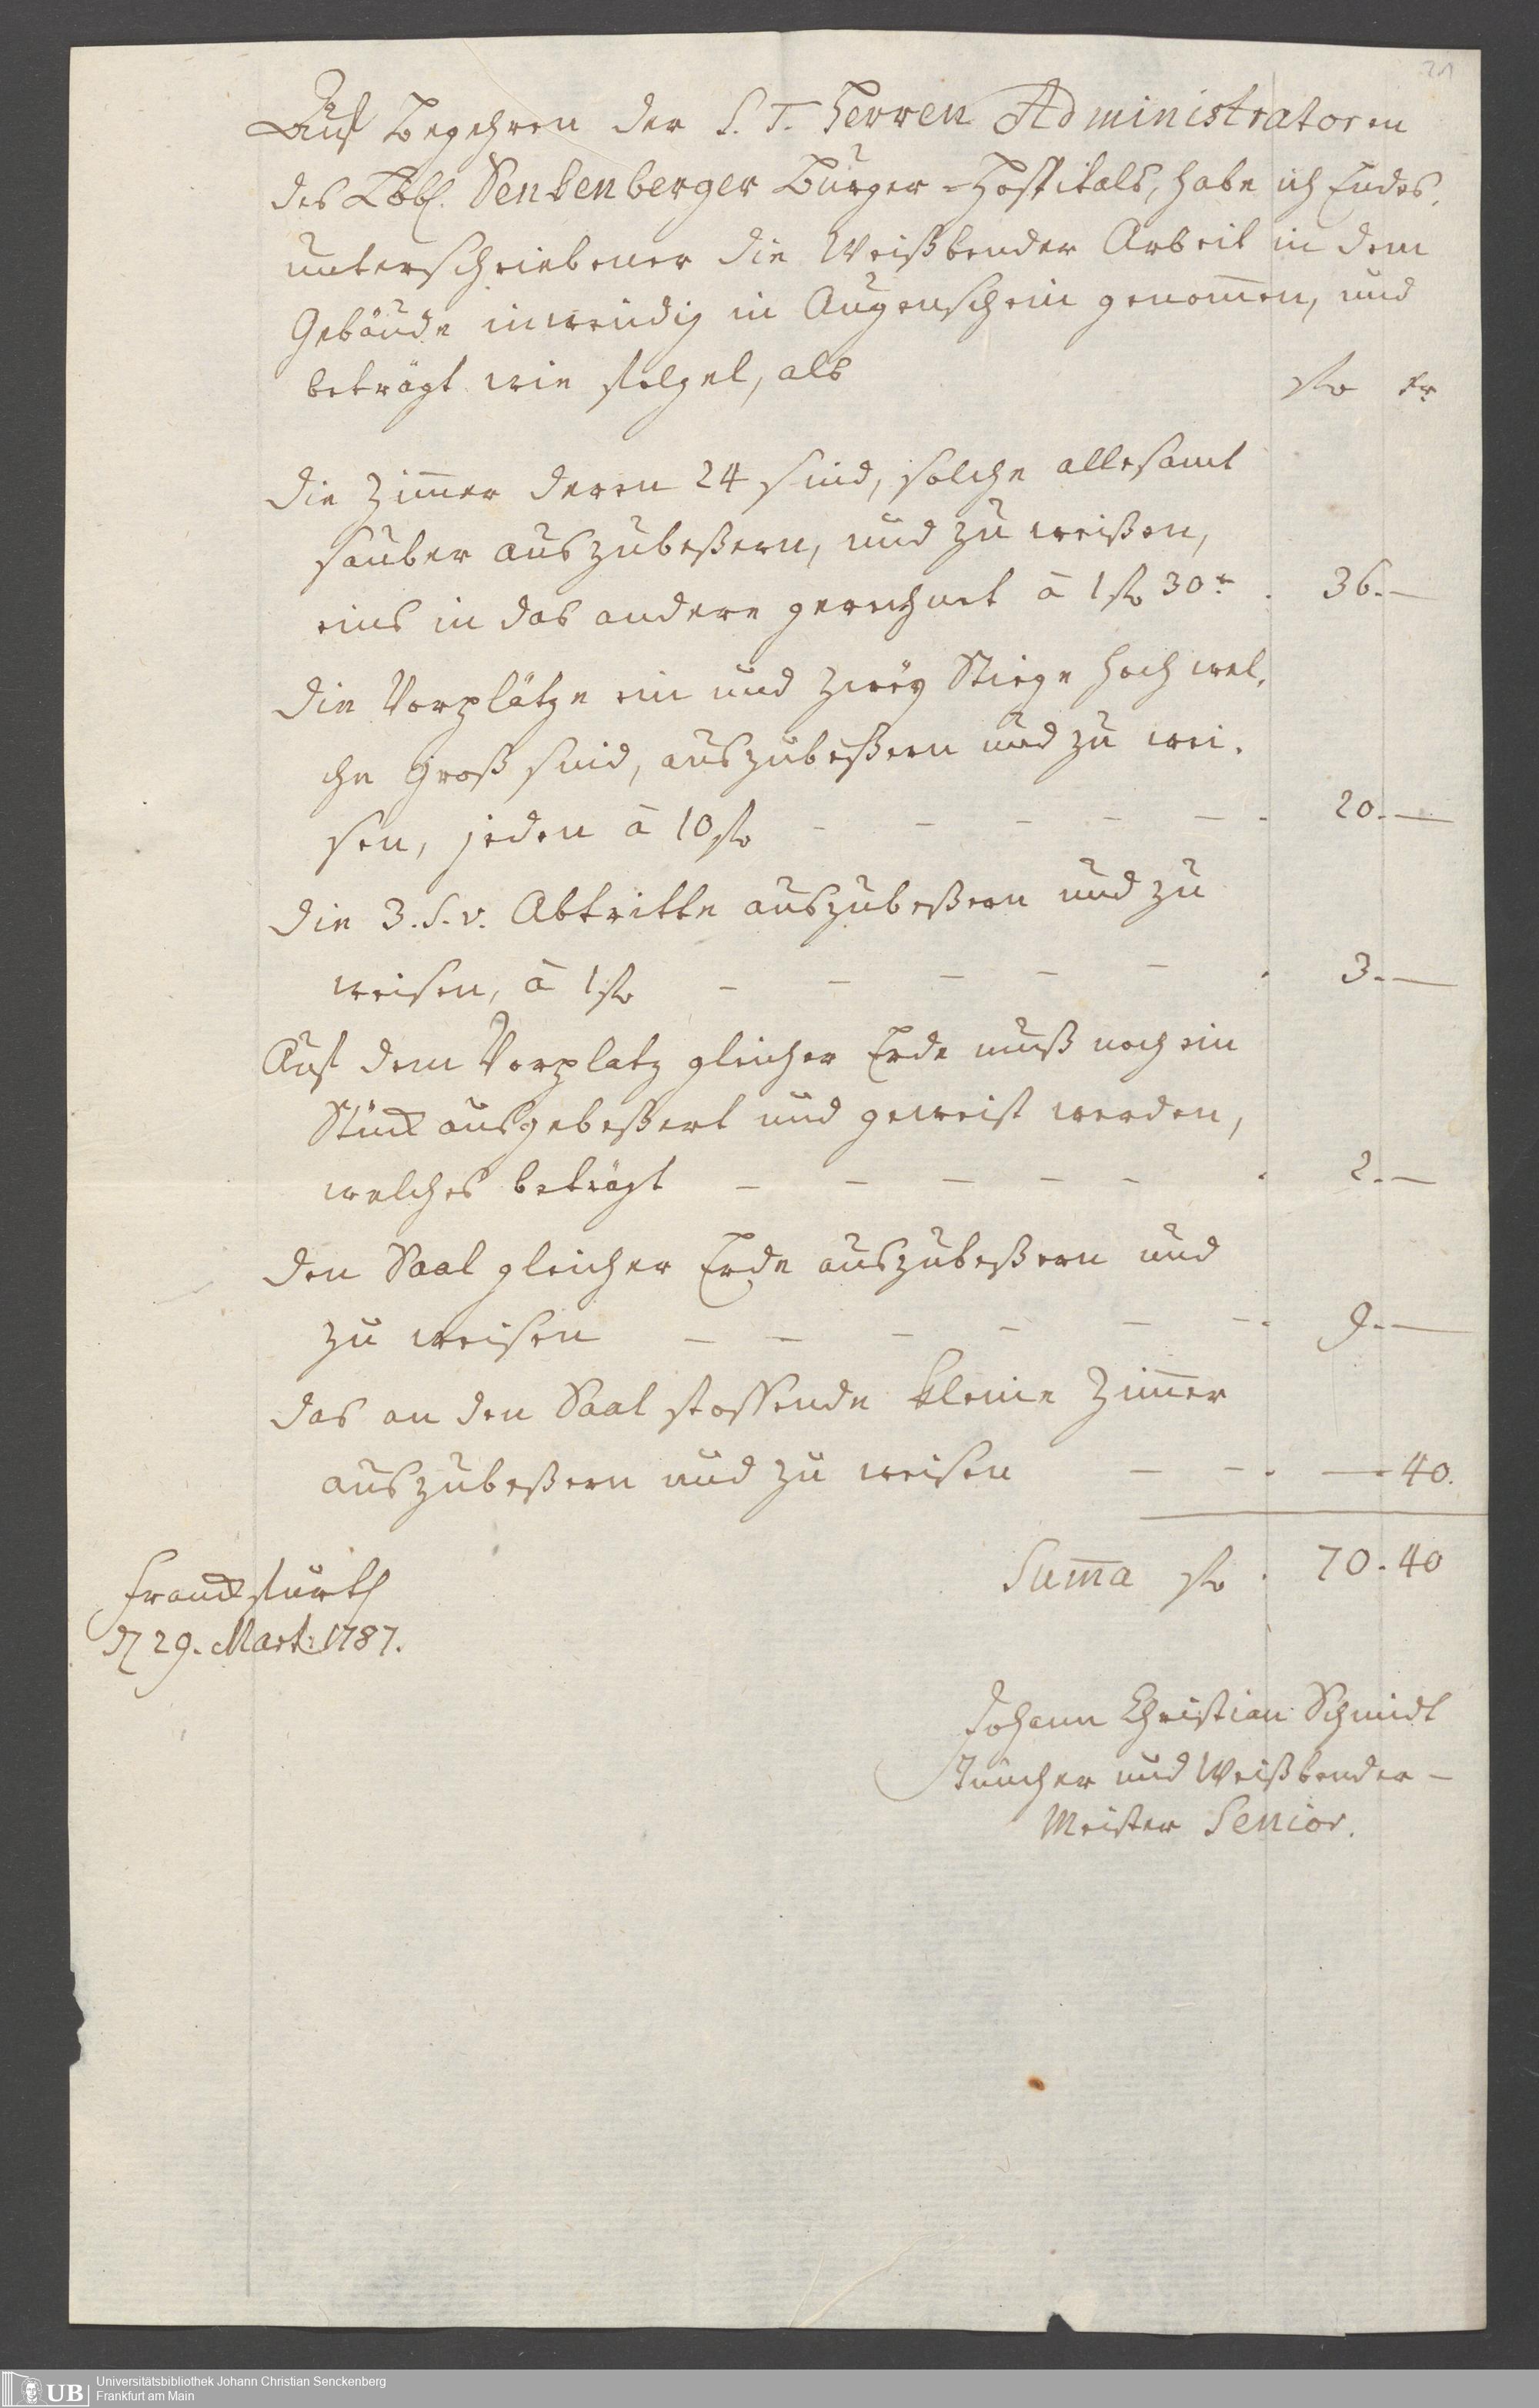 21
Auf Begehren der S. T. Herren Administratoren
des Löbl. Senkenberger Burger-Hospitals, habe ich Endes,
unterschriebener die Weißbender Arbeit in dem
Gebäude inwendig in Augenschein genom̄en, und
beträgt wie folget, als
fl kr
Die Zim̄er deren 24 sind, solche allesamt
sauber auszubeßern, und zu weißen,
eins in das andere gerechnet à 1 fl 30 x . 36. —
Die Vorplätze ein und zweÿ Stiege hoch wel,
che groß sind, auszubeßern und zu wei,
sen, jeden à 10 fl — — — — — . 20. —
Die 3. S. v. Abtritte auszubeßern und zu
weisen, à 1 fl — — — — — . 3. —
Auf dem Vorplatz gleicher Erde muß noch ein
Stück ausgebeßert und geweist werden,
welches beträgt — — — — — . 2. —
Den Saal gleicher Erde auszubeßern und
zu weisen — — — — — — . 9. —
Das an den Saal stossende kleine Zim̄er
auszubeßern und zu weisen — — . — . 40.
Sum̄a fl . 70 . 40
Franckfurth
d 29. Mart: 1787.
Johann Christian Schmidt
Tüncher und Weißbender —
Meister Senior.
UB Universitätsbibliothek Johann Christian Senckenberg
Frankfurt am Main